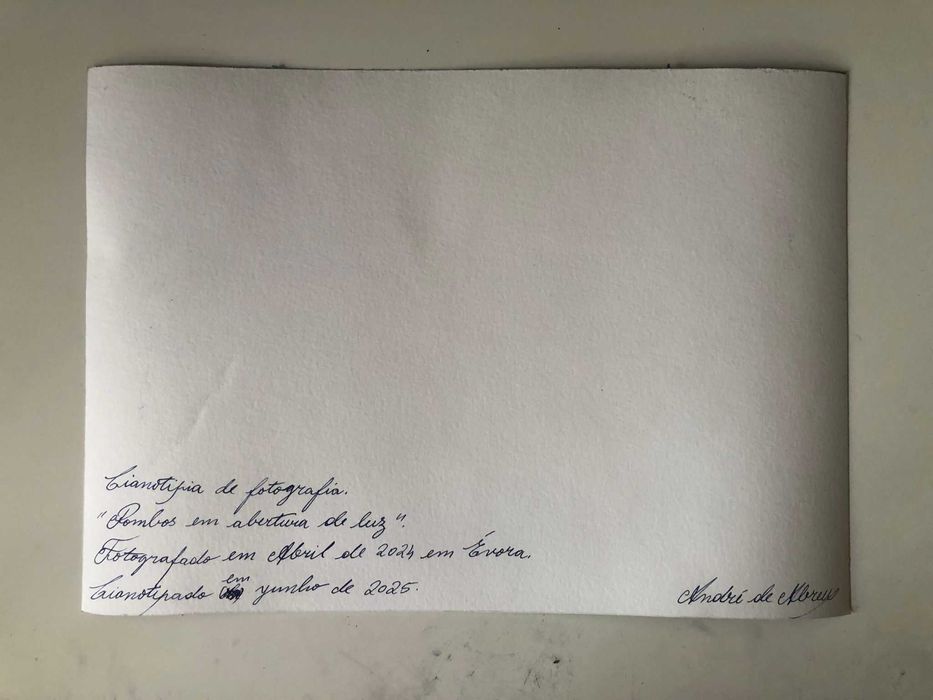 Cianotipia de fotografia.
"Pombos em abertura de luz".
Fotografado em Abril de 2024 em Évora.
Cianotipado em junho de 2025.
André de Abreu